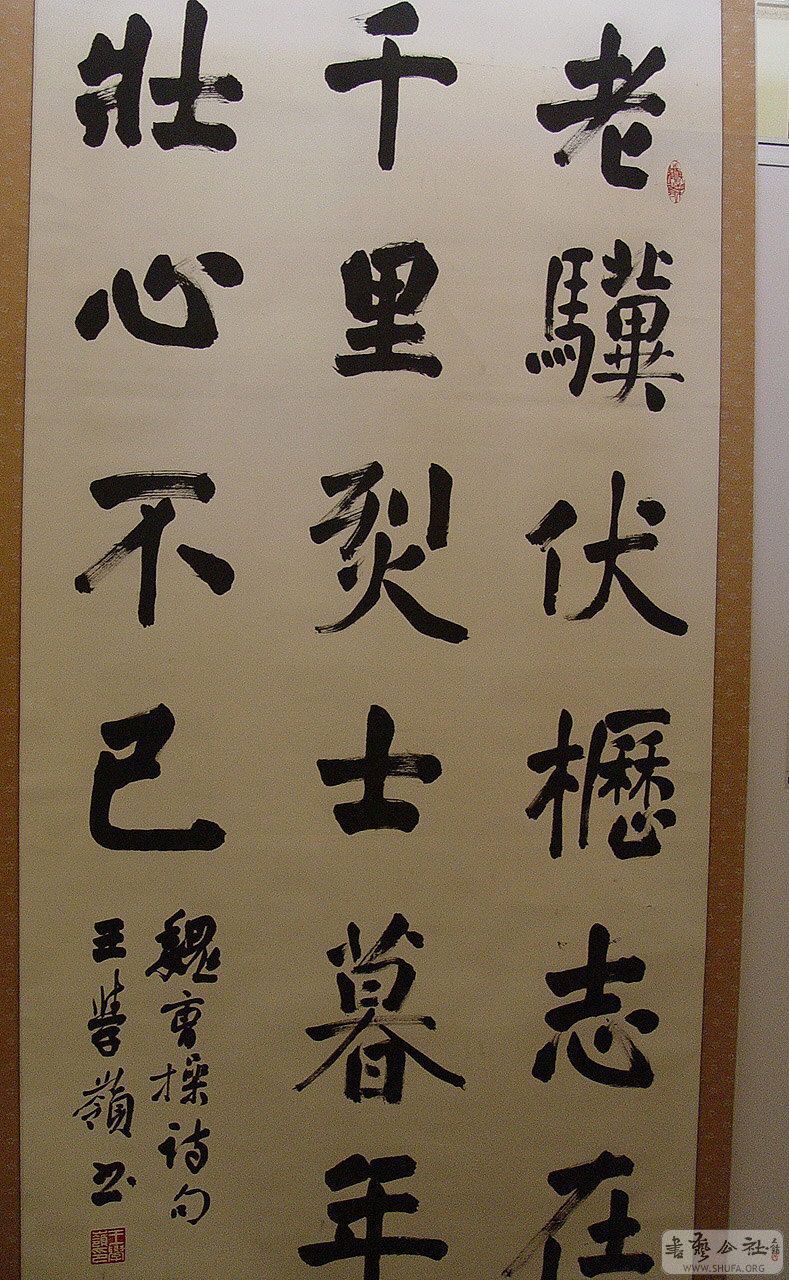 老驥伏櫪志在
千里烈士暮年
壯心不已
魏曹操詩句
王學嶺书
書藝公社
WWW.SHUFA.ORG